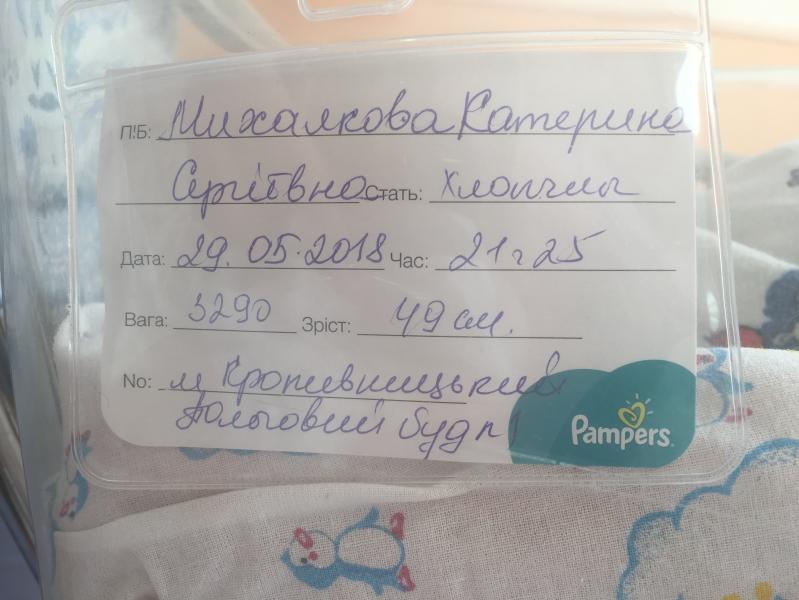 П.І.Б: Михалкова Катерина
Сергіївна Стать: Хлопчик
Дата: 29.05.2018 Час: 21г25
Вага: 3290 Зріст: 49 см.
No: м Кропивницький
Пологовий буд
Pampers